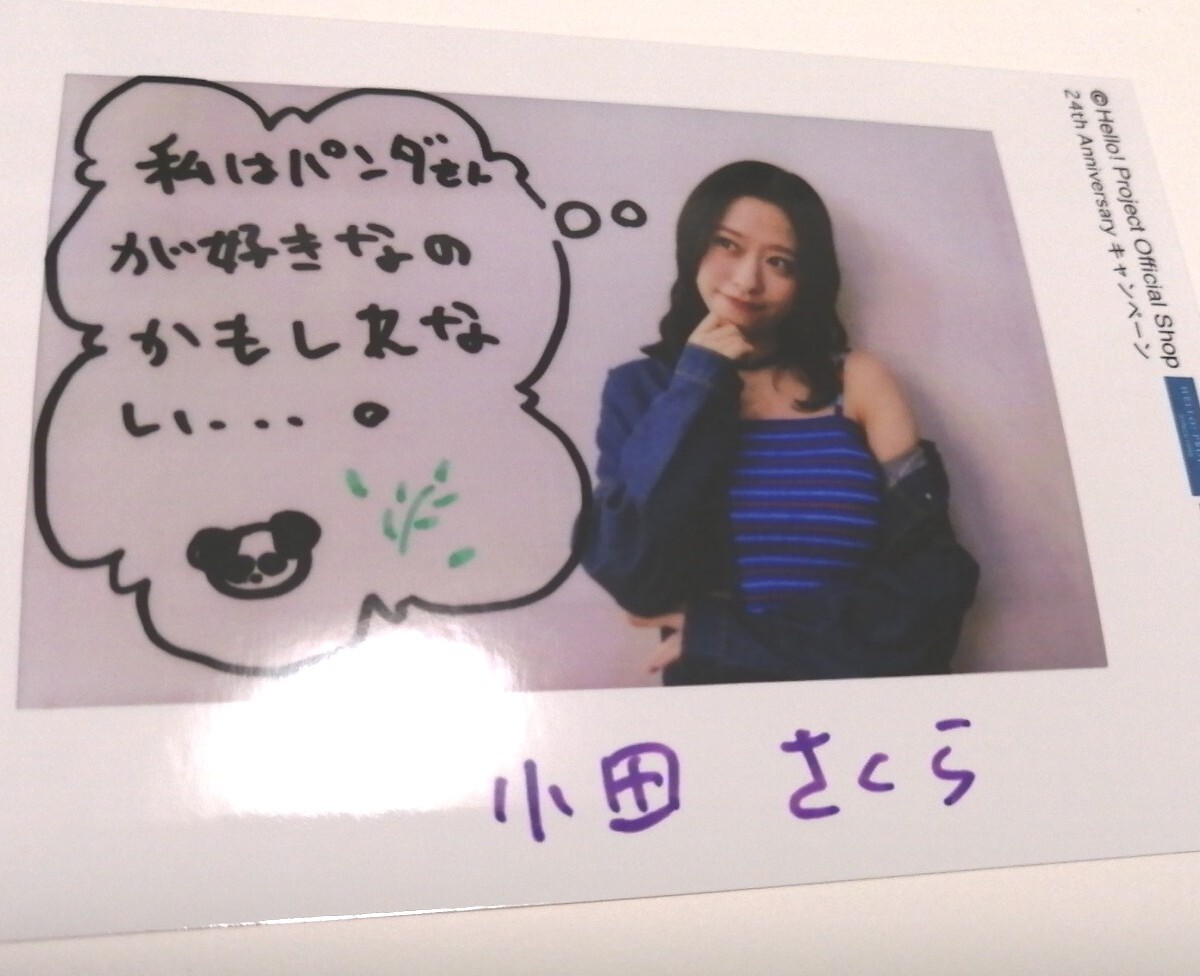 私はパンダさん
が好きなの
かもしれな
い...。
小田 さくら
©Hello! Project Official Shop
24th Anniversary キャンペーン